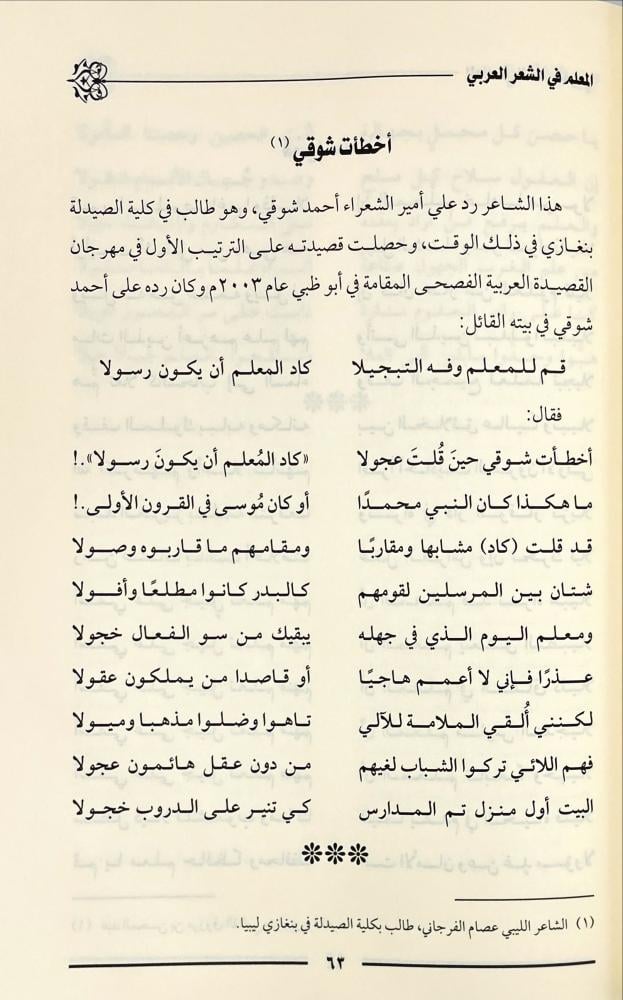 المعلم في الشعر العربي
أخطأت شوقي (١)
هذا الشاعر رد علي أمير الشعراء أحمد شوقي، وهو طالب في كلية الصيدلة
بنغازي في ذلك الوقت، وحصلت قصيدته على الترتيب الأول في مهرجان
القصيدة العربية الفصحى المقامة في أبو ظبي عام ٢٠٠٣م وكان رده على أحمد
شوقي في بيته القائل:
قم للمعلم وفه التبجيلا كاد المعلم أن يكون رسولا
فقال:
أخطأت شوقي حينَ قُلتَ عجولا «كاد المُعلم أن يكونَ رسولا».!
ما هكذا كان النبي محمدًا أو كان مُوسى في القرون الأولى.!
قد قلت (كاد) مشابها ومقاربًا ومقامهم ما قاربوه وصولا
شتان بين المرسلين لقومهم كالبدر كانوا مطلعًا وأفولا
ومعلم اليوم الذي في جهله يبقيك من سو الفعال خجولا
عذرًا فإني لا أعمم هاجيًا أو قاصدا من يملكون عقولا
لكنني أُلقي الملامة للآلي تاهوا وضلوا مذهبا وميولا
فهم اللائي تركوا الشباب لغيهم من دون عقل هائمون عجولا
البيت أول منزل تم المدارس كي تنير على الدروب خجولا
(١) الشاعر الليبي عصام الفرجاني، طالب بكلية الصيدلة في بنغازي ليبيا.
٦٣